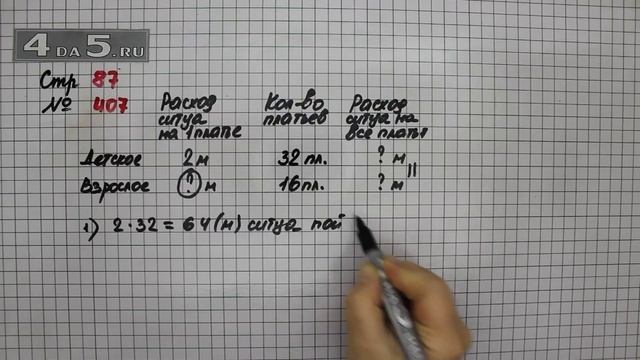 4DA5.RU
Стр 87
№ 407
Расход ситуа на 1 платье
Кол-во платьев
Расход ситуа на все платья
Детское 2 м 32 пл. ? м
Взрослое ? м 16 пл. ? м
1) 2 · 32 = 64 (м) ситуа пой